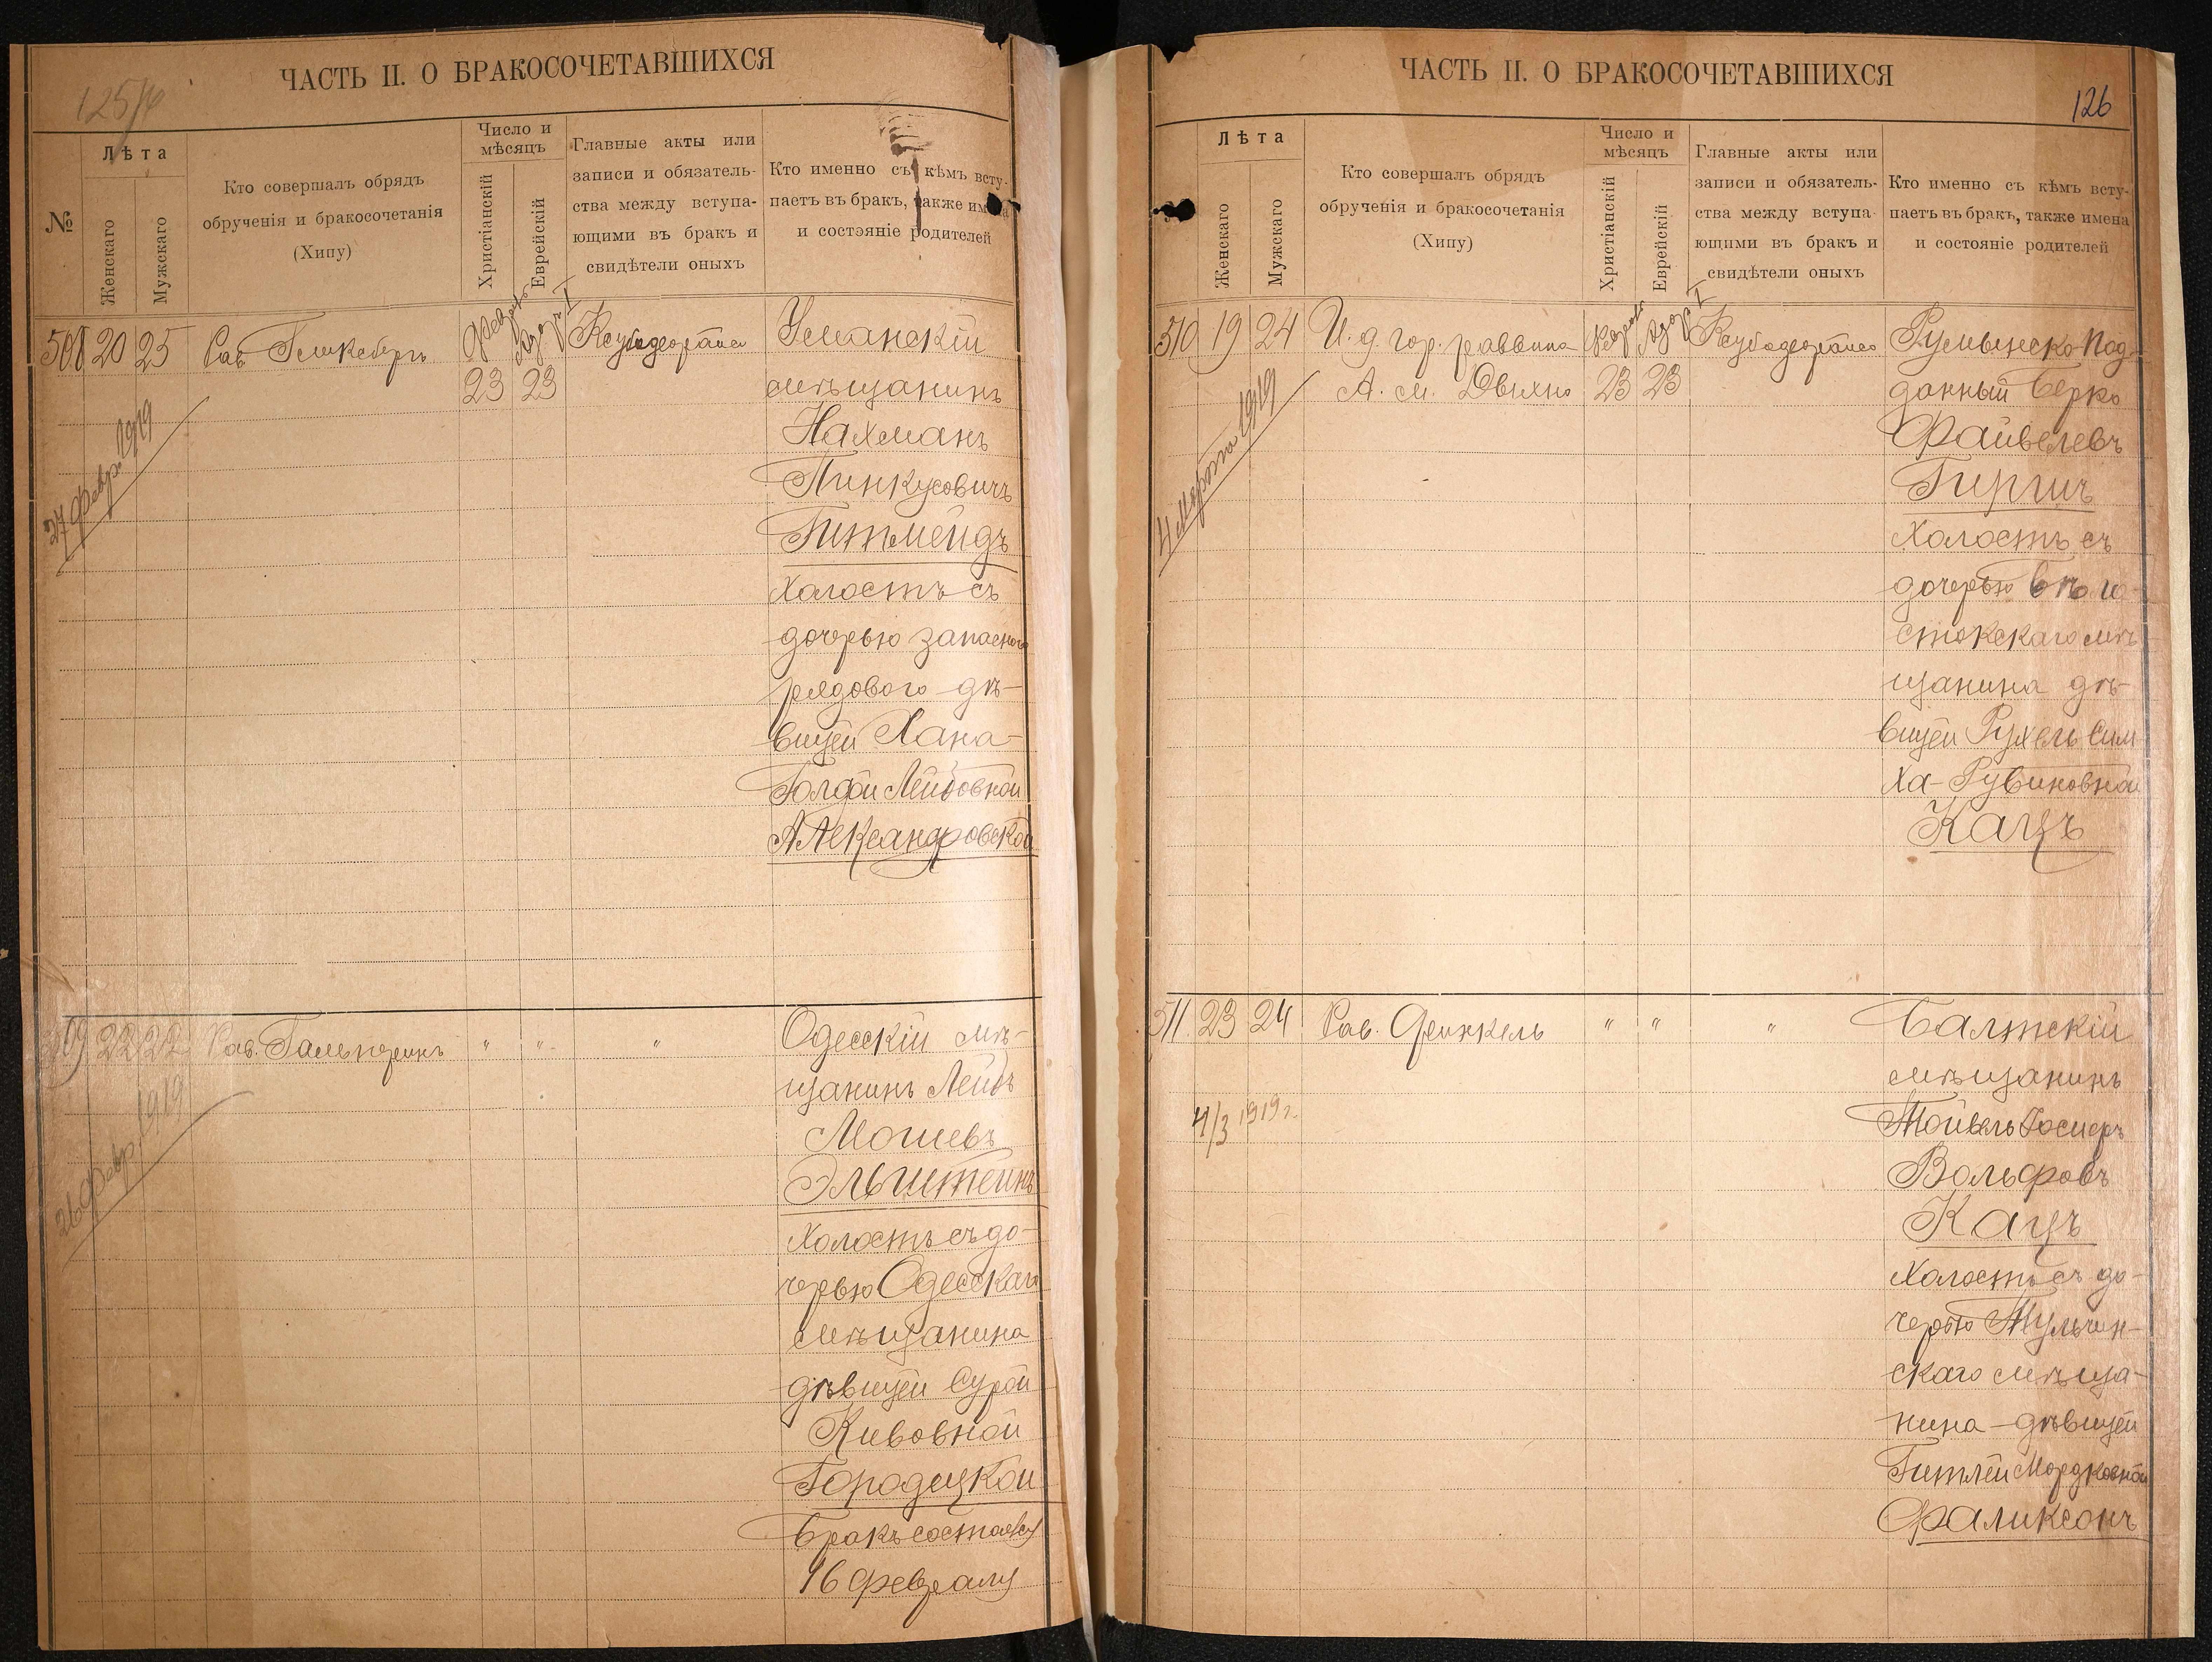 ЧАСТЬ II. О БРАКОСОЧЕТАВШИХСЯ
125
№
Лѣта
Женскаго
Мужскаго
Кто совершалъ обрядъ
обрученія и бракосочетанія
(Хипу)
Число и
мѣсяцъ
Христіанскій
Еврейскій
Главные акты или
записи и обязатель-
ства между вступа-
ющими въ бракъ и
свидѣтели оныхъ
Кто именно съ кѣмъ всту-
паетъ въ бракъ, также имена
и состояніе родителей
508 20 25 Рав. 
23 23
27 февр. 1919
Уманскій
мѣщанинъ
Нахманъ
Пинкусовичъ
Гитмейдъ
холостъ съ
дочерью запаснаго
рядового дѣ-
вицей Хана-
Голдой Лейбовной
Александровской
509 22 22 Рав. Гальперинъ " " "
26 февр. 1919
Одесскій мѣ-
щанинъ Лейбъ
Мошевъ
Эльштейнъ
холостъ съ до-
черью Одесскаго
мѣщанина
дѣвицей Сурой
Кивовной
Городецкой
Бракъ состоялся
16 февраля
ЧАСТЬ II. О БРАКОСОЧЕТАВШИХСЯ
126
Лѣта
Женскаго
Мужскаго
Кто совершалъ обрядъ
обрученія и бракосочетанія
(Хипу)
Число и
мѣсяцъ
Христіанскій
Еврейскій
Главные акты или
записи и обязатель-
ства между вступа-
ющими въ бракъ и
свидѣтели оныхъ
Кто именно съ кѣмъ всту-
паетъ въ бракъ, также имена
и состояніе родителей
510 19 24 И. д. гор. раввина
А. м. 23 23
4 марта 1919
Румынско-Под-
данный Берко
Файвелевъ
Гиргич
холостъ съ
дочерью Бѣло-
стокскаго мѣ-
щанина дѣ-
вицей Рухель Сим
ха-Рувиновной
Кацъ
511 23 24 Рав. Френкель " " "
4/3 1919 г.
Балтскій
мѣщанинъ
Тойвель
Вольфовъ
Кацъ
холостъ съ до-
черью Тульчин-
скаго мѣща-
нина дѣвицей
Гитлей Мордковной
Фаликсонъ